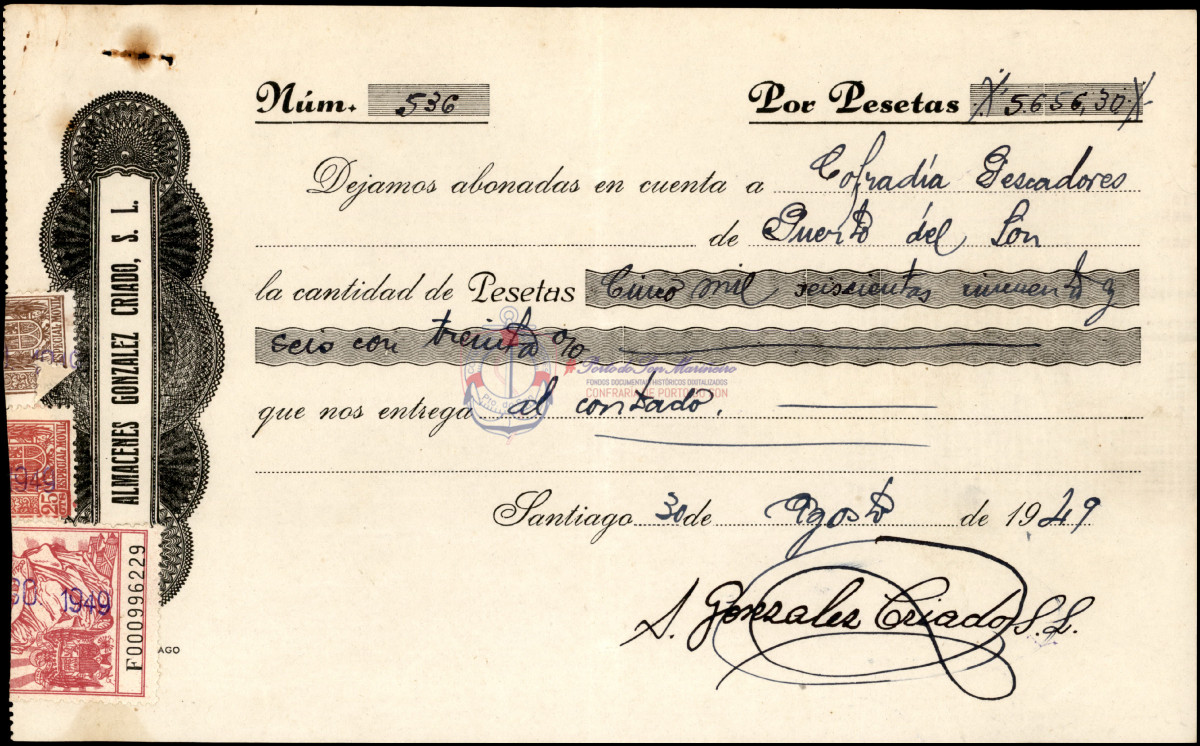 Núm. 536
Por Pesetas 5.656,30
Dejamos abonadas en cuenta a Cofradía Pescadores
de Puerto del Son
la cantidad de Pesetas Cinco mil seiscientas cincuenta y
seis con treinta %
que nos entrega al contado.
Santiago 30 de Agosto de 1949
A. Gonzalez Criado S.L.
ALMACENES GONZALEZ CRIADO, S. L.
ESPECIAL MOVIL
1949
25
ESPECIAL MOVIL
1949
F000996229
AGO
#Porto do Son Marineiro
FONDOS DOCUMENTAIS HISTÓRICOS DIGITALIZADOS
CONFRARÍA DE PORTO DO SON